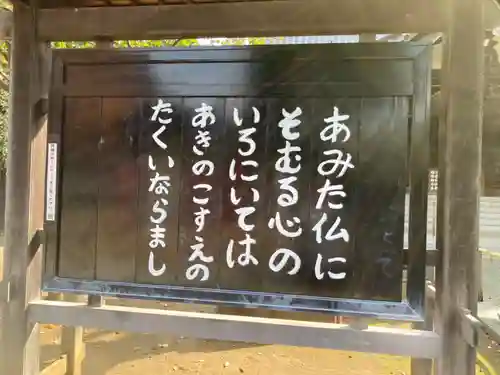 あみた仏に
そむる心の
いろにいては
あきのこすえの
たくいならまし